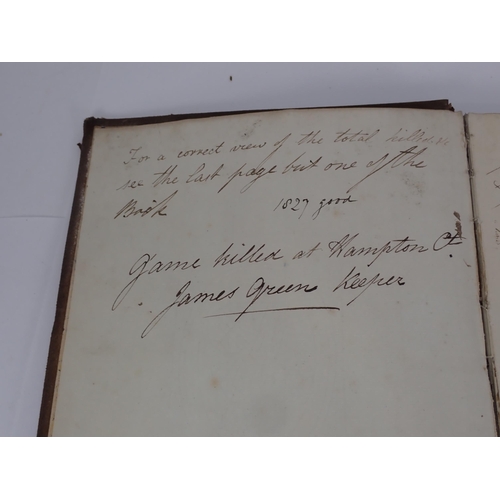 For a correct view of the total killed
see the last page but one of the
Book 1827 good
Game killed at Hampton Ct.
James Green Keeper